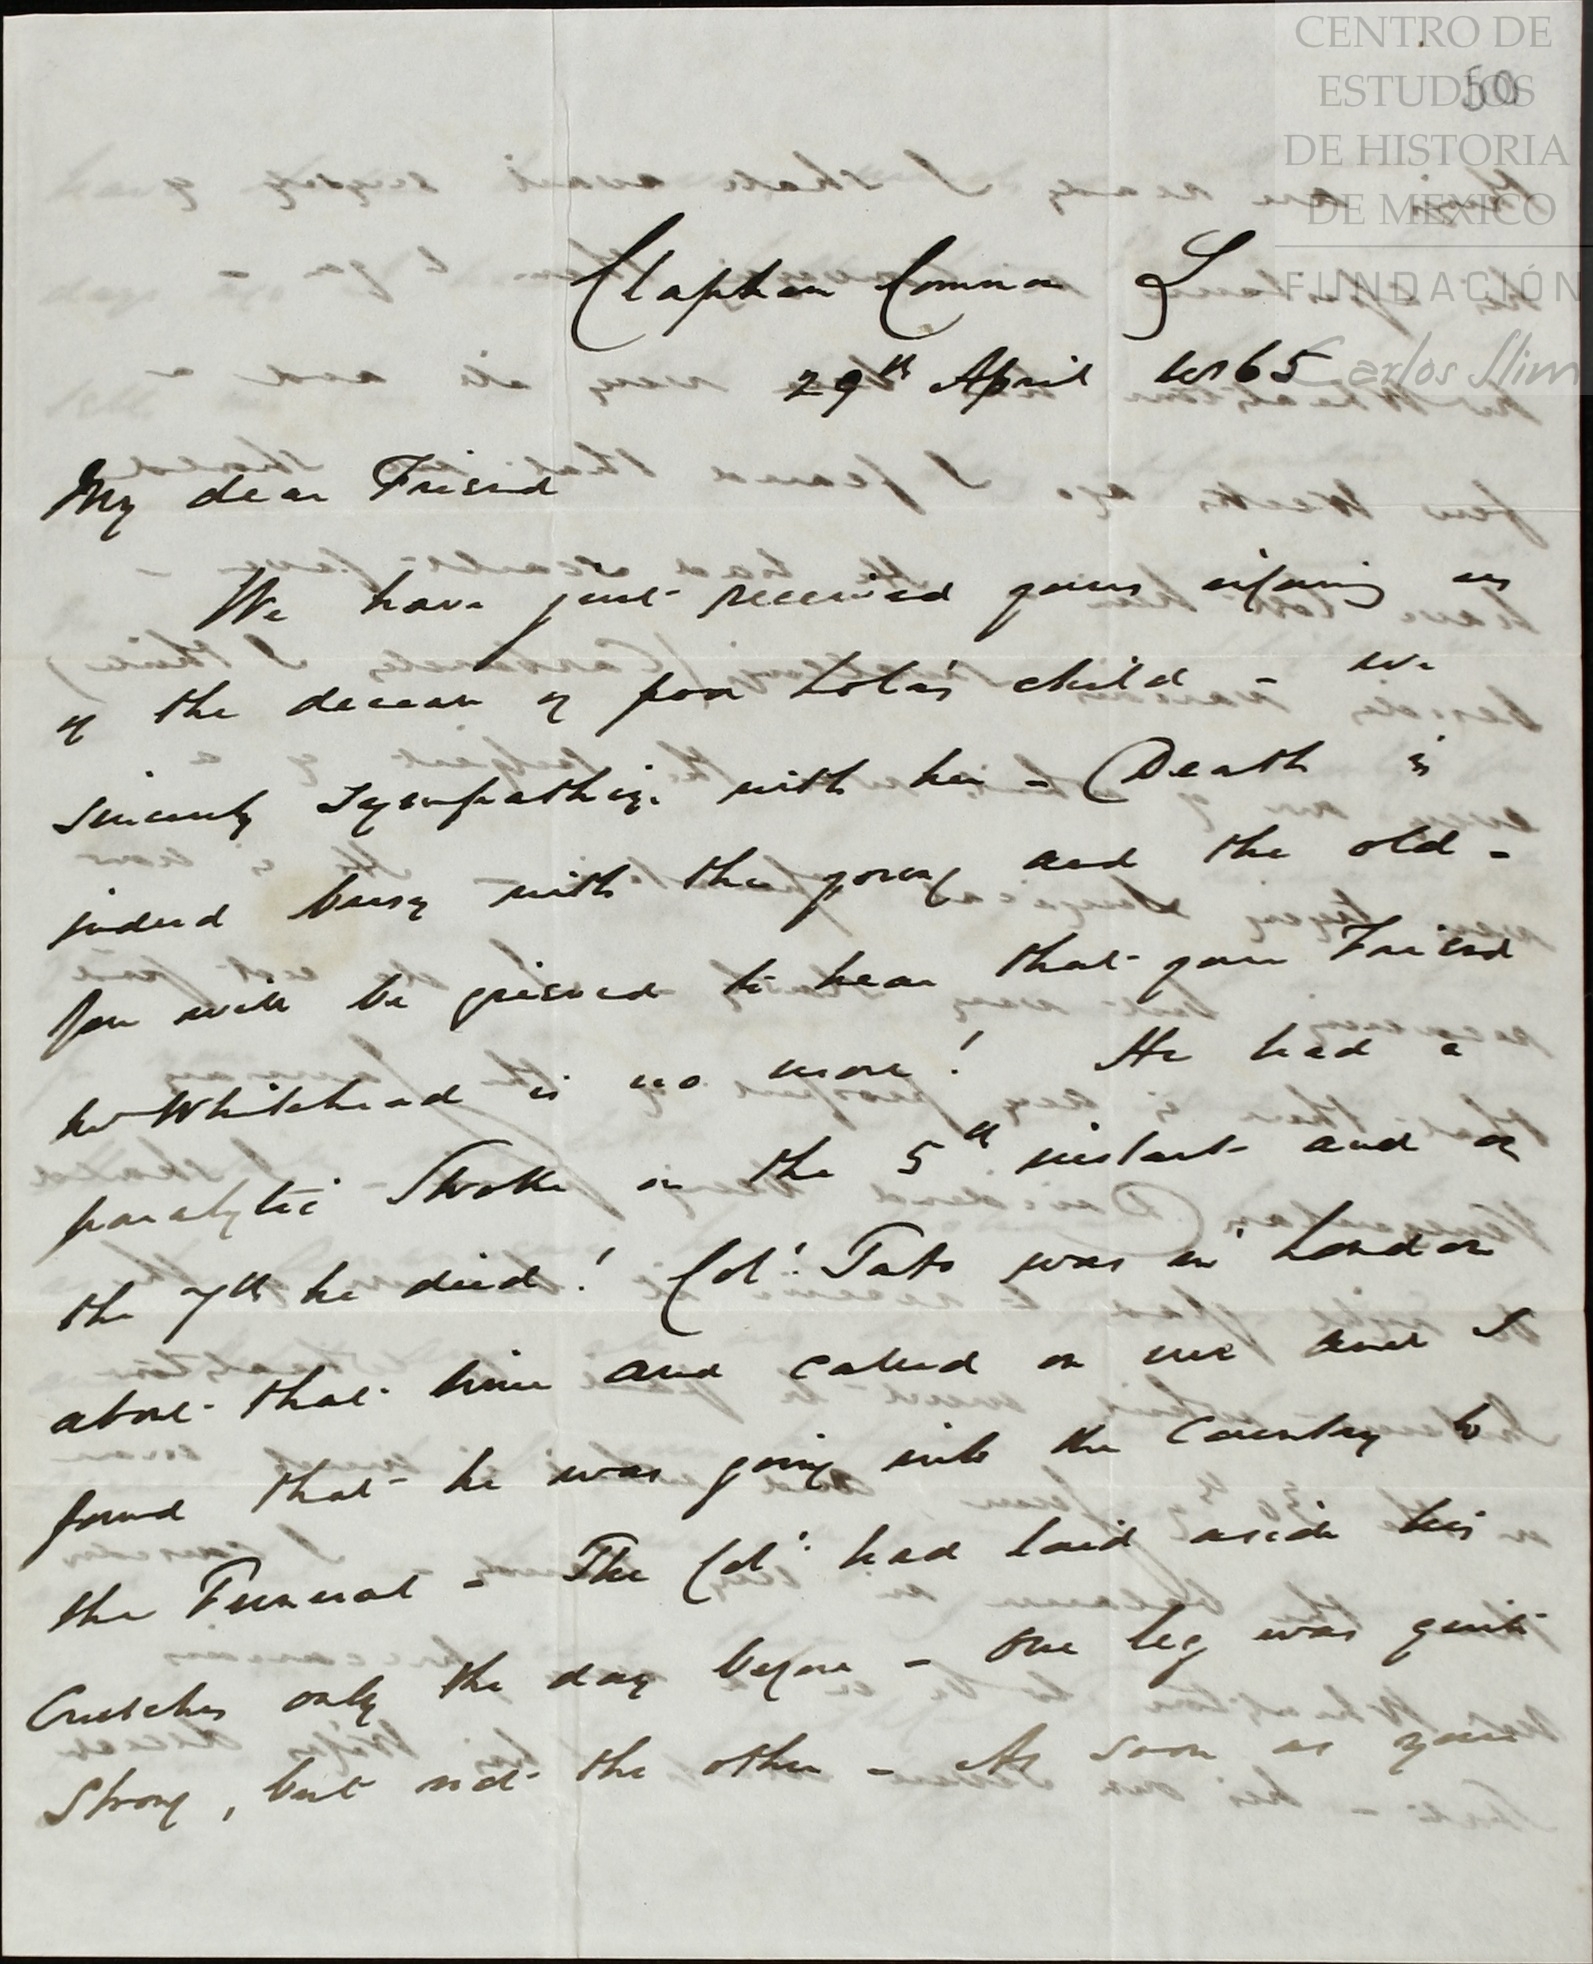 CENTRO DE
ESTUDIOS
DE HISTORIA
DE MÉXICO
FUNDACIÓN
Carlos Slim
50
Clapham Common S
29th April 1865
My dear Friend
We have just received yours informing us
of the decease of poor Lola's child - We
sincerely sympathize with her - Death is
indeed busy with the young and the old -
You will be grieved to hear that your Friend
Mr Whitehead is no more! He had a
paralytic Stroke on the 5th instant and on
the 7th he died! Col! Tate was in London
about that time and called on me and I
found that he was going into the Country to
the Funeral - The Col! had laid aside his
Crutches only the day before - One leg was quite
Strong, but not the other - As soon as your